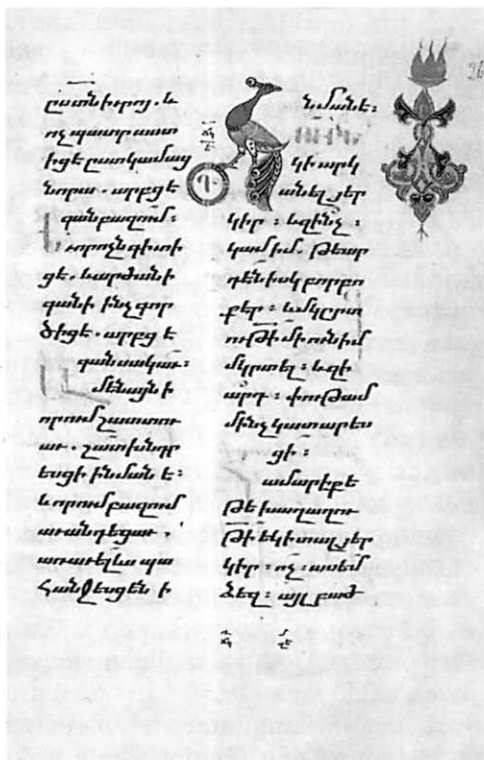 ըստ նխրոյ. և
ոչ պատրաստ
իցէ ըստ կամայ
նորա. արբցէ
գանբազում:
որոչ գիտի
ցէ. և արժանի
գանի ինչ գոր
ծիցէ. արբցէ
գանսակաւ:
մենայնի
որում շատ տու
աւ. շատ խնդր
եսցի ի նմանէ:
և որում բազում
աւանդեցաւ.
առաւել ևս պա
հանջեսցեն ի
նմանէ:
կի արկ
անել յեր
կիր. և զի՞նչ
կամիմ. թե արդ
դէն իսկ բորբո
քէր. և մկրտ
ութի մի ունիմ
մկրտել. և զի
արդ. փութամ
մինչ կատարես
ցի:
ամարիք է
թե խաղաղու
թի եկի տալ յեր
կիր. ոչ ասեմ
ձեզ. այլ բաժ